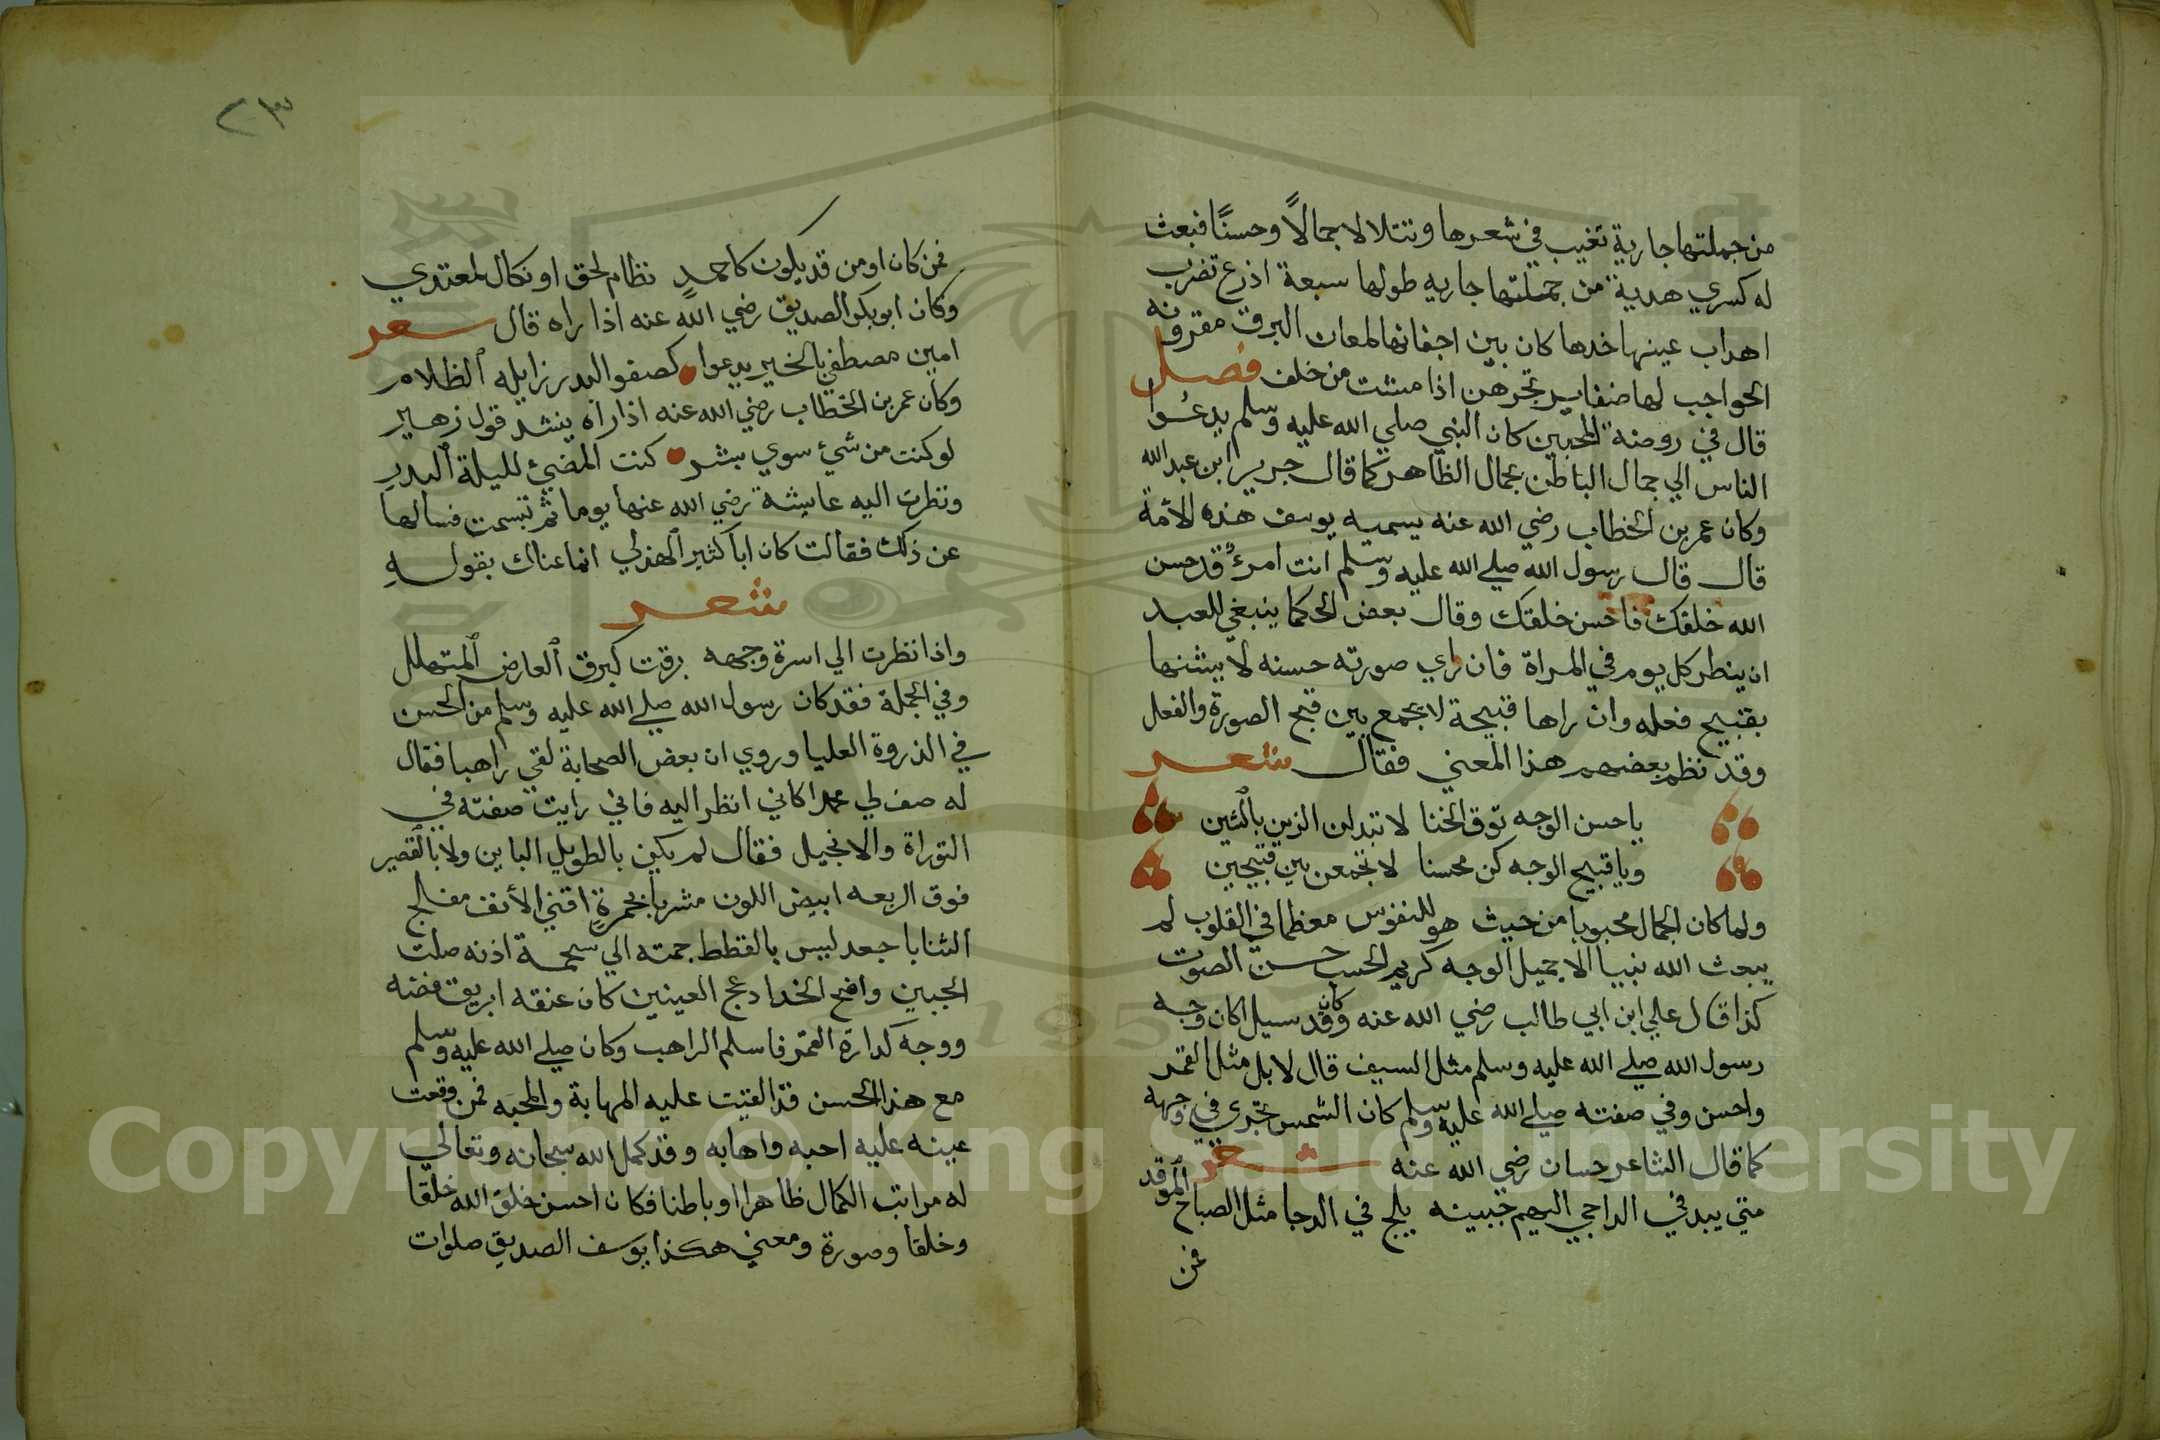 من جملتها جارية تغيب في شعرها وتتلالا جمالاً وحسنًا فبعث
له كسري هدية من جملتها جاريه طولها سبعة اذرع تضرب
اهداب عينها خدها كان بين اجفانها لمعان البرق مقرونه
الحواجب لها ضفاير تجرهن اذا مشت من خلف فصل
قال في روضة المحبين كان النبي صلي الله عليه وسلم يدعوا
الناس الي جمال الباطن بجمال الظاهر كما قال جرير ابن عبد الله
وكان عمر بن الخطاب رضي الله عنه يسميه يوسف هذه الامة
قال قال رسول الله صلي الله عليه وسلم انت امرءٌ قد حسن
الله خلقك فاحسن خلقك وقال بعض الحكما ينبغي للعبد
ان ينظر كل يوم في المراة فان راي صورته حسنه لا يشنها
بقبيح فعله وان راها قبيحة لا يجمع بين قبح الصورة والفعل
وقد نظم بعضهم هذا المعني فقال شعر
ياحسن الوجه توق الخنا لا تبدلن الزين بالشين
ويا قبيح الوجه كن محسنا لا تجمعن بين قبيحين
ولما كان الجمال محبوبا من حيث هو للنفوس معظما في القلوب لم
يبعث الله نبيا الا جميل الوجه كريم الحسب حسن الصوت
كذا قال علي ابن ابي طالب رضي الله عنه وكان قد سيل اكان وجه
رسول الله صلي الله عليه وسلم مثل السيف قال لا بل مثل القمر
واحسن وفي صفته صلي الله عليه وسلم كان الشمس تجري في وجهه
كما قال الشاعر حسان رضي الله عنه شعر
متي يبد في الداجي البهيم جبينه يلج في الدجا مثل الصباح الموقد
فمن
٢٣
فمن كان او من قد يكون كاحمدٍ نظام لحق او نكال لمعتدي
وكان ابو بكر الصديق رضي الله عنه اذا راه قال شعر
امين مصطفي بالخير يدعوا كصفو البدر زايله الظلام
وكان عمر بن الخطاب رضي الله عنه اذا راه ينشد قول زهير
لو كنت من شيء سوي بشر كنت المضيء لليلة البدر
ونظرت اليه عايشة رضي الله عنها يوما ثم تبسمت فسالها
عن ذلك فقالت كان ابا كثير الهذلي انما عناك بقوله
شعر
واذا نظرت الي اسرة وجهه برقت كبرق العارض المتهلل
وفي الجملة فقد كان رسول الله صلي الله عليه وسلم من الحسن
في الذروة العليا وروي ان بعض الصحابة لقي راهبا فقال
له صف لي محمدا كاني انظر اليه فاني رايت صفته في
التوراة والانجيل فقال لم يكن بالطويل الباين ولا بالقصير
فوق الربعه ابيض اللون مشربا بحمرةٍ اقني الأنف مفلج
الثنايا جعد ليس بالقطط جمته الي شحمة اذنه صلت
الجبين واضح الخد ادعج العينين كان عنقه ابريق فضه
ووجه كدارة القمر فاسلم الراهب وكان صلي الله عليه وسلم
مع هذا الحسن قد القيت عليه المهابة والمحبه فمن وقعت
عينه عليه احبه واهابه وقد كمل الله سبحانه وتعالي
له مراتب الكمال ظاهرا وباطنا فكان احسن خلق الله خلقا
وخلقا وصورة ومعني هكذا يوسف الصديق صلوات
Copyright © King Saud University